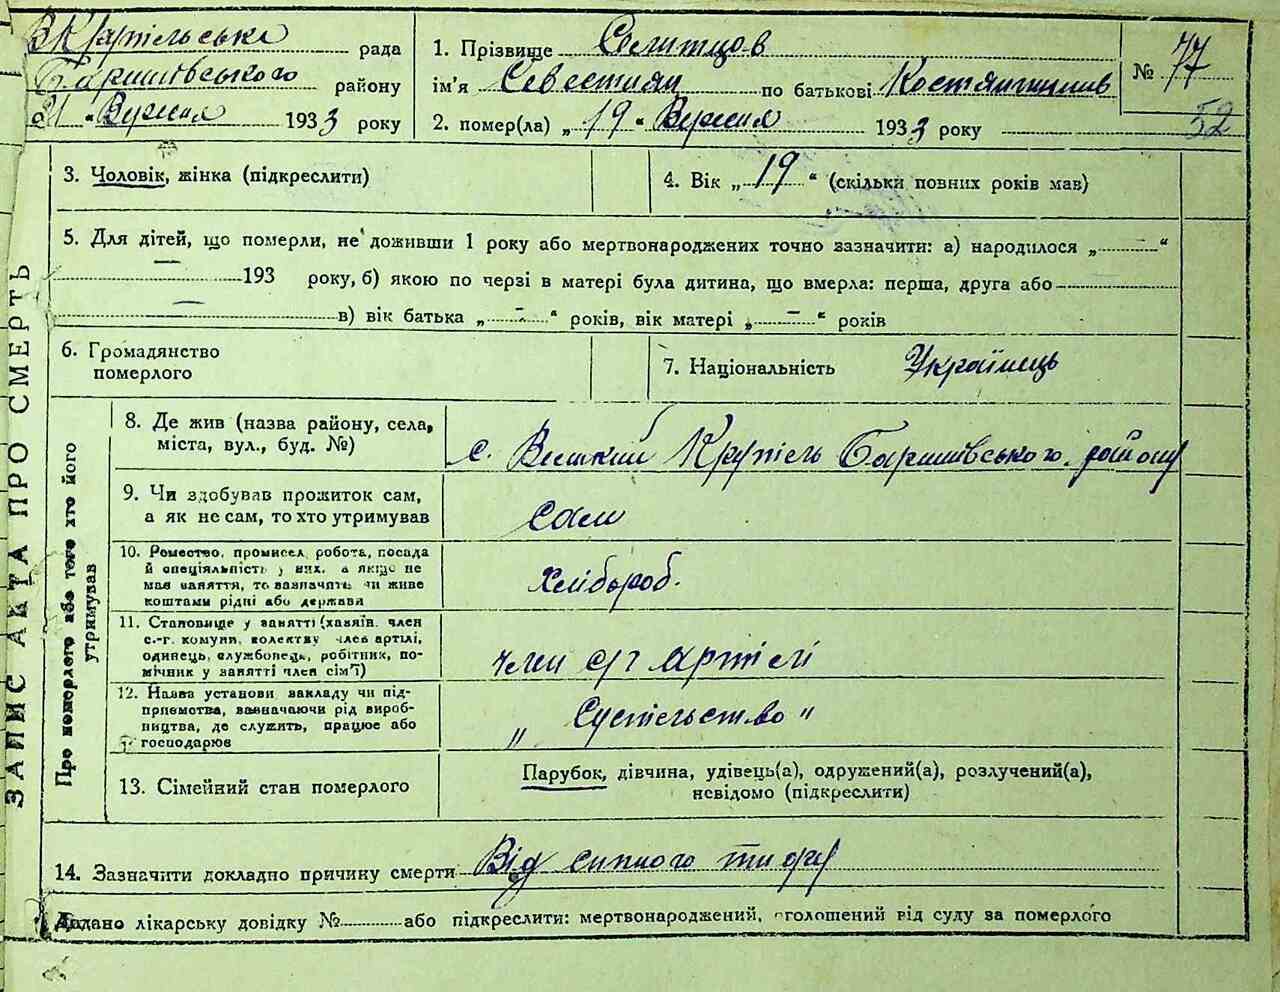 В Крупільська рада
Баришівського району
"21" Вересня 1933 року
1. Прізвище Селитцов
ім'я Севестіян по батькові Костянтинів
2. помер(ла) „19" Вересня 1933 року
№ 77
52
3. Чоловік, жінка (підкреслити)
4. Вік „19" (скільки повних років мав)
5. Для дітей, що померли, не доживши 1 року або мертвонароджених точно зазначити: а) народилося „ — "
— 193 року, б) якою по черзі в матері була дитина, що вмерла: перша, друга або
— в) вік батька „ — " років, вік матері „ — " років
6. Громадянство
померлого
7. Національність Українець
ЗАПИС АКТА ПРО СМЕРТЬ
Про померлого або того хто його
утримував
8. Де жив (назва району, села,
міста, вул., буд. №)
с. Великий Крупіль Баришівського району
9. Чи здобував прожиток сам,
а як не сам, то хто утримував
сам
10. Ремество, промисел робота, посада
й спеціяльність у них, а якщо не
мав заняття, то зазначить чи живе
коштами рідні або держави
хлібороб.
11. Становище у занятті (хазяїн, член
с.-г. комуни, колективу член артілі,
одинець, службовець, робітник, по-
мічник у занятті член сім'ї)
член с/г артілі
12. Назва установи закладу чи під-
приємства, зазначаючи рід вироб-
ництва, де служить, працює або
господарює
„ Суспільство "
13. Сімейний стан померлого
Парубок, дівчина, удівець(а), одружений(а), розлучений(а),
невідомо (підкреслити)
14. Зазначити докладно причину смерти Від сипного тифу
Додано лікарську довідку № або підкреслити: мертвонароджений, оголошений від суду за померлого